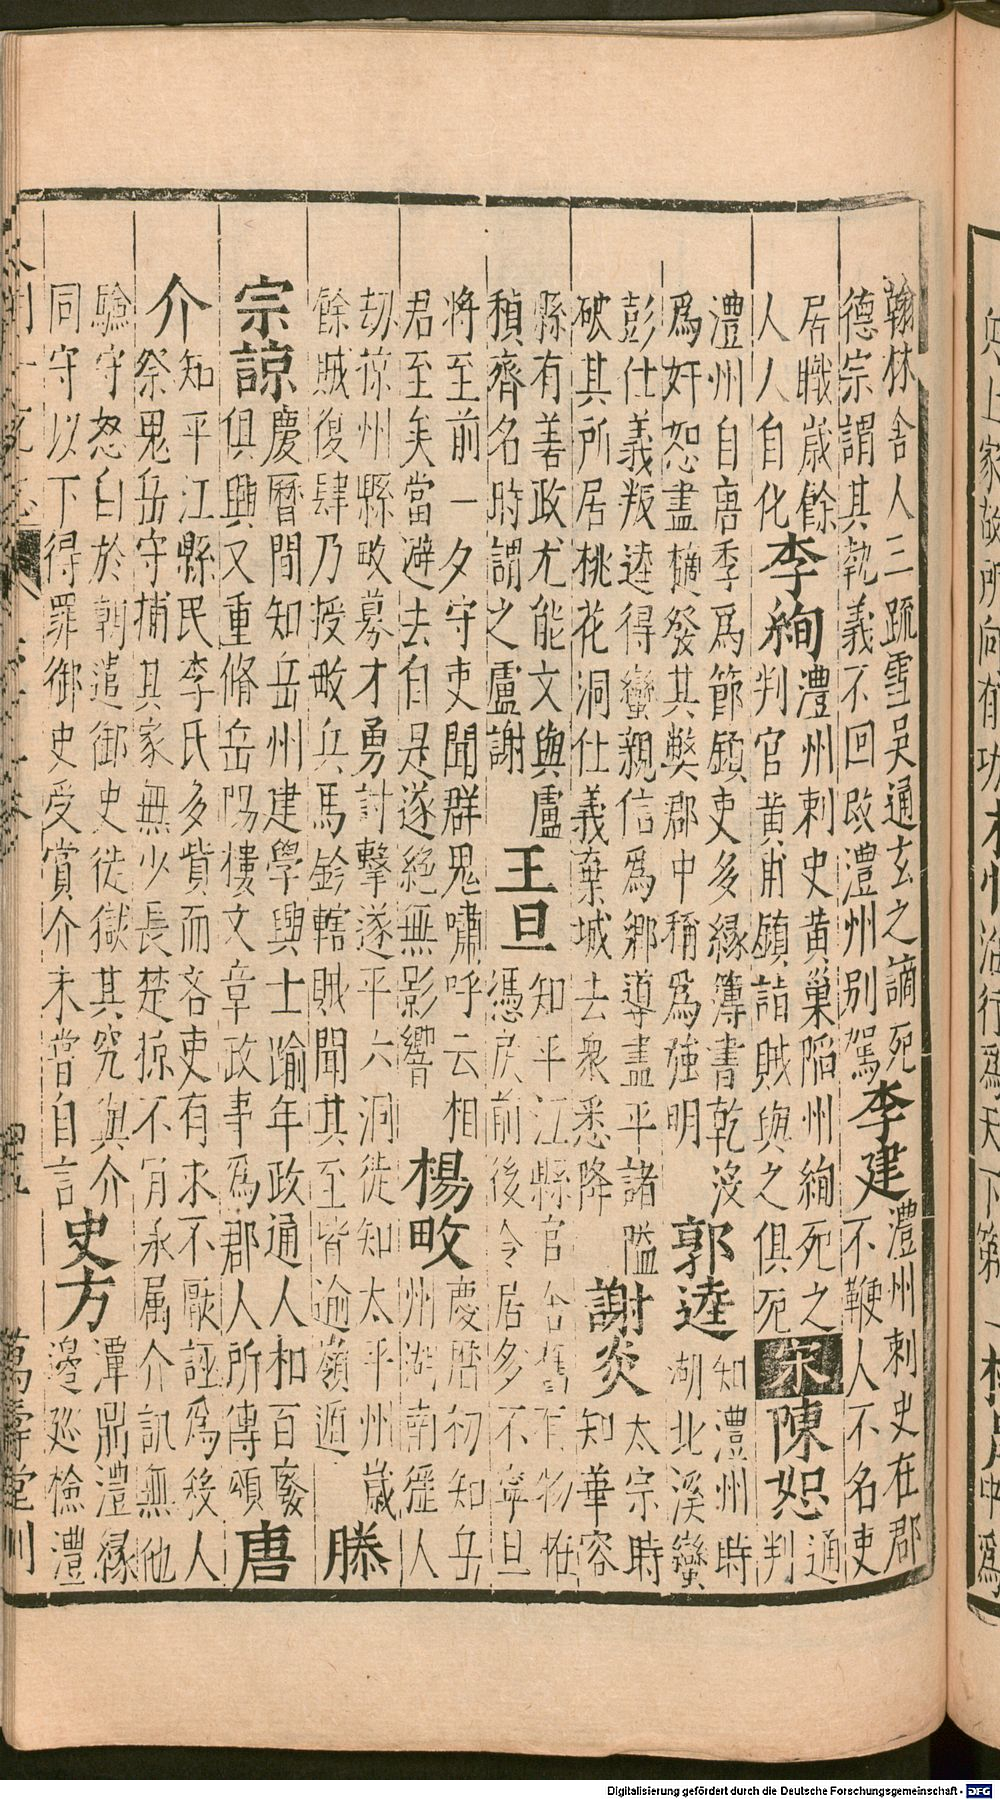 翰林舍人三疏雪吳通玄之謫死
德宗謂其執義不回改澧州别駕
李建
澧州刺史在郡
不鞭人不名吏
居職歲餘
人人自化
李絢
澧州刺史黄巢陷州絢死之
判官黄甫鎮詣賊與之俱死
宋
陳恕
通
判
澧州自唐季為節鎮吏多緣簿書乾沒
為奸恕盡擿發其弊郡中稱為強明
郭逵
知澧州時
湖北溪蠻
彭仕義叛逵得蠻親信為鄉導盡平諸隘
破其所居桃花洞仕義棄城去衆悉降
謝炎
太宗時
知華容
縣有善政尤能文與盧
稹齊名時謂之盧謝
王旦
知平江縣官舍舊有物怪
憑戾前後令居多不寧旦
將至前一夕守吏聞群鬼嘯呼云相
君至矣當避去自是遂絕無影響
楊畋
慶曆初知岳
州湖南徭人
劫掠州縣畋募才勇討擊遂平六洞徒知太平州歲
餘賊復肆乃授畋兵馬鈐轄賊聞其至皆逾嶺遁
滕
宗諒
慶曆間知岳州建學興士踰年政通人和百廢
俱興又重脩岳陽樓文章政事為郡人所傳頌
唐
介
知平江縣民李氏多貲而吝吏有求不厭誣為殺人
祭鬼岳守捕其家無少長楚掠不肯承属介訊無他
驗守怒白於朝遣御史徒獄其究與介
同守以下得罪御史受賞介未嘗自言
史方
潭鼎澧緣
邊巡檢澧
萬壽堂刊
Digitalisierung gefördert durch die Deutsche Forschungsgemeinschaft - DFG